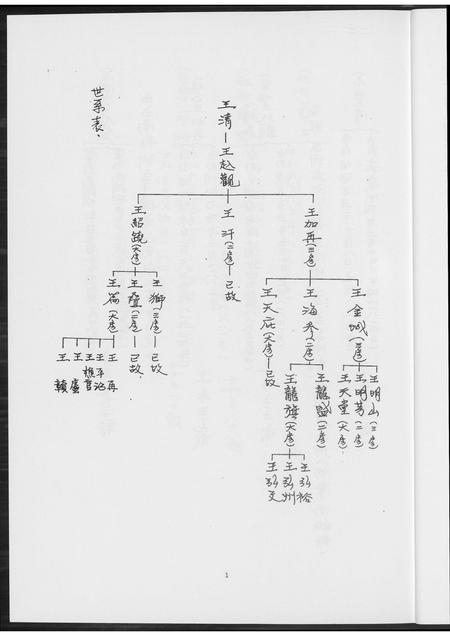 世系表、
王清—王赵觀
王紹鏡(大房)
王汗(二房)—已故
王加再(三房)
王萬(大房)
王聲(二房)—已故、
王獅(三房)—已故
王天庇(大房)—已故
王海參(二房)
王金城(三房)
王賴
王盛
王樵官
王平治
王再
王龍旗(大房)
王龍賜(二房)
王天堂(大房)
王明芳(二房)
王明山(三房)
王弘文
王弘州
王弘裕
1